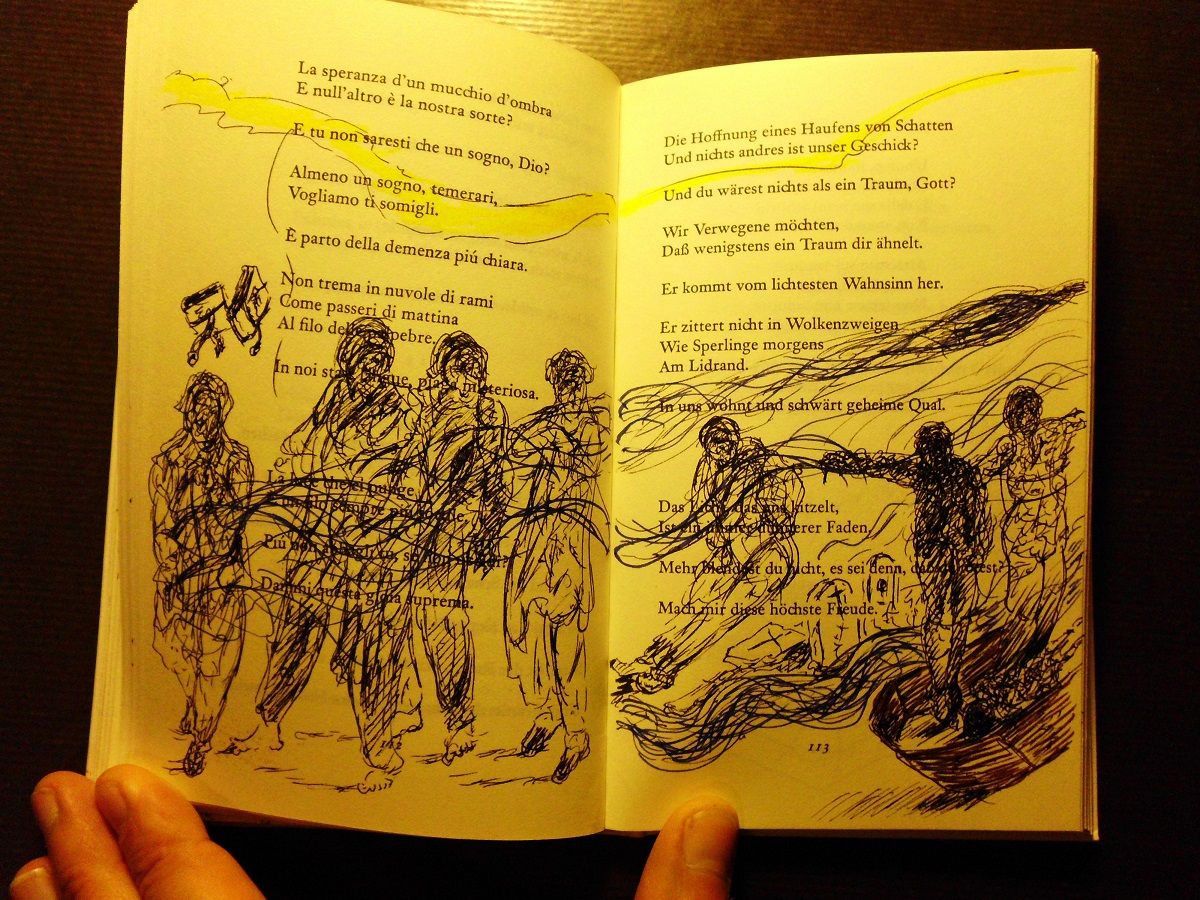 La speranza d'un mucchio d'ombra
E null'altro è la nostra sorte?
E tu non saresti che un sogno, Dio?
Almeno un sogno, temerari,
Vogliamo ti somigli.
È parto della demenza piú chiara.
Non trema in nuvole di rami
Come passeri di mattina
Al filo delle palpebre.
In noi sta e langue, piaga misteriosa.
La luce che ci punge
sempre
Piú non abbagli tu, se non
Dammi questa gioia suprema.
112
Die Hoffnung eines Haufens von Schatten
Und nichts andres ist unser Geschick?
Und du wärest nichts als ein Traum, Gott?
Wir Verwegene möchten,
Daß wenigstens ein Traum dir ähnelt.
Er kommt vom lichtesten Wahnsinn her.
Er zittert nicht in Wolkenzweigen
Wie Sperlinge morgens
Am Lidrand.
In uns wohnt und schwärt geheime Qual.
Das Licht, das uns kitzelt,
Ist ein immer dünnerer Faden.
Mehr blendest du nicht, es sei denn, du tötest?
Mach mir diese höchste Freude.
113